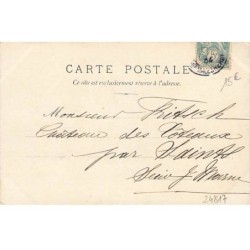 CARTE POSTALE
Ce côté est exclusivement réservé à l'adresse.
15€
Monsieur Fritsch
Château des Coteaux
par Saints
Seine & Marne
24817